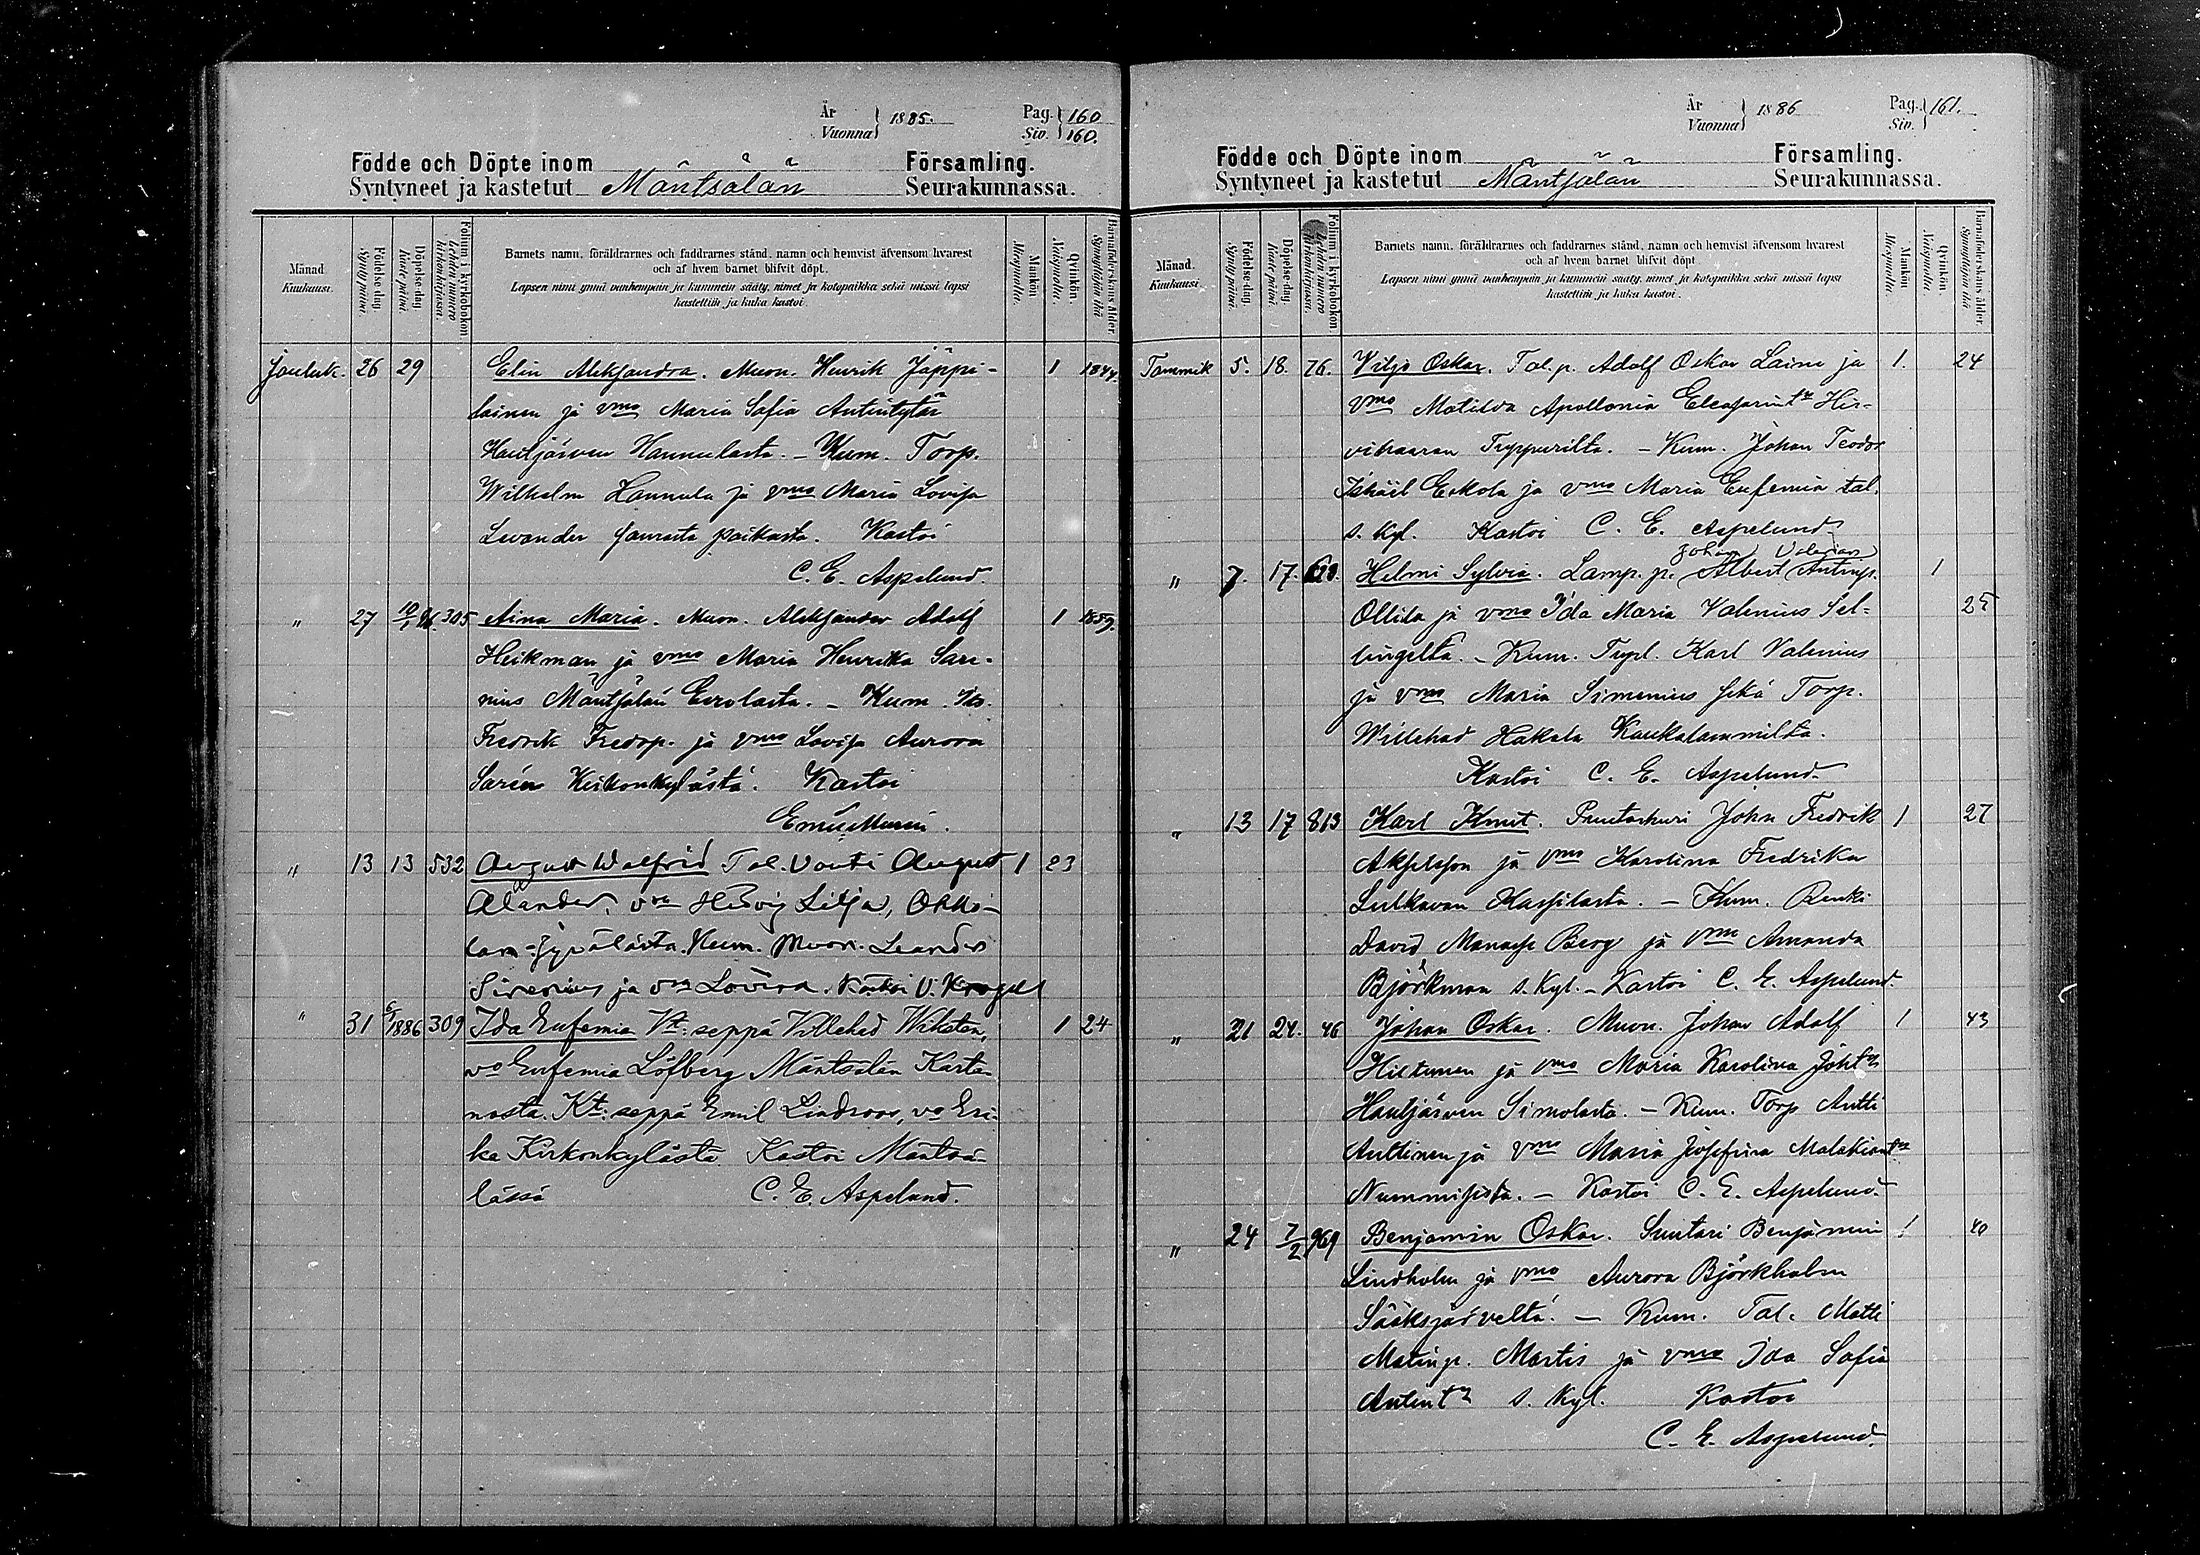 År
Vuonna } 1885.
Pag. } 160
Siv. } 160.
Födde och Döpte inom Församling.
Syntyneet ja kastetut Mäntsälän Seurakunnassa.
Månad. Kuukausi.
Födelse-dag. Syntypäivä.
Döpelse-dag. Kastepäivä.
Folium i kyrkobokon. Lehden numero kirkonkirjassa.
Barnets namn, föräldrarnes och faddrarnes stånd, namn och hemvist äfvensom hvarest
och af hvem barnet blifvit döpt.
Lapsen nimi ynnä vanhempain ja kummein sääty, nimet ja kotopaikka sekä missä lapsi
kastettiin ja kuka kastoi.
Mankön. Miespuolia.
Qvinkön. Naispuolia.
Barnaföderskans ålder. Synnyttäjän ikä
Jouluk. 26 29 Elin Aleksandra. Muon. Henrik Jäppi- 1 1844.
läinen ja vmo Maria Sofia Antintytär
Hautjärven Hannulasta. - Kum. Torp.
Wilhelm Hannula ja vmo Maria Lovisa
Levander samasta paikasta. Kastoi
C. E. Aspelund.
" 27 10/1 86. 305 Aina Maria. Muon. Aleksander Adolf 1 1859.
Heikman ja vmo Maria Henrika Sare-
nius Mäntsälän Eerolasta. - Kum. Its.
Fredrik Fredrp. ja vmo Lovisa Aurora
Sarén Kirkonkylästä. Kastoi
Emil Murén.
" 13 13 532 August Walfrid Tal. Vouti August 1 23
Ålander, vmo Hedvig Lilja, Ohko-
lan Jypälästä. Kum. Muon. Leander
Sirenius ja vmo Loviisa. Kastoi V. Krogell
" 31 6/1 1886 309 Ida Eufemia Kt. seppä Villehed Wiksten, 1 24
vo Eufemia Löfberg Mäntsälän Karta-
nosta. Kt. seppä Emil Lindroos, vo Eri-
ka Kirkonkylästä Kastoi Mäntsä-
lässä C. E. Aspelund.
År
Vuonna } 1886
Pag. } 161.
Siv.
Födde och Döpte inom Församling.
Syntyneet ja kastetut Mäntsälän Seurakunnassa.
Månad. Kuukausi.
Födelse-dag. Syntypäivä.
Döpelse-dag. Kastepäivä.
Folium i kyrkobokon. Lehden numero kirkonkirjassa.
Barnets namn, föräldrarnes och faddrarnes stånd, namn och hemvist äfvensom hvarest
och af hvem barnet blifvit döpt
Lapsen nimi ynnä vanhempain ja kummein sääty, nimet ja kotopaikka sekä missä lapsi
kastettiin ja kuka kastoi.
Mankön. Miespuolia.
Qvinkön. Naispuolia.
Barnaföderskans ålder. Synnyttäjän ikä
Tammik 5. 18. 76. Wiljo Oskar. Tal. p. Adolf Oskar Laine ja 1. 24
vmo Matilda Apollonia Eleasarintr Hir-
vihaaran Tyypurilta. - Kum. Johan Teodor
Eskola ja vmo Maria Eufemia tal.
s. kyl. Kastoi C. E. Aspelund.
Johan Valerian
" 7. 17. Helmi Sylvia. Lamp. p. Albert Antinp. 1
Ollila ja vmo Ida Maria Valenius Sel- 25
lingeltä. - Kum. Tupl. Karl Valenius
ja vmo Maria Simenius sekä Torp.
Willehad Hakala Kaukalammilta.
Kastoi C. E. Aspelund.
" 13 17 813 Karl Knut. Puutarhuri John Fredrik 1 27
Akselsson ja vmo Karolina Fredrika
Sulkavan Kassilasta. - Kum. Renki
David Manasse Berg ja vmo Amanda
Björkman s. kyl. - Kastoi C. E. Aspelund.
" 21 24. 46 Johan Oskar. Muon. Johan Adolf 1 43
Hietanen ja vmo Maria Karolina Joh.tr
Hautjärven Simolasta. - Kum. Torp Antti
Anttinen ja vmo Maria Josefina Malakiantr
Nummisista. - Kastoi C. E. Aspelund.
" 24 7/2 969 Benjamin Oskar. Suutari Benjamin 1 40
Lindholm ja vmo Aurora Björkholm
Sääksjärveltä. - Kum. Tal. Matti
Matinp. Martis ja vmo Ida Sofia
Antintr s. kyl. Kastoi
C. E. Aspelund.